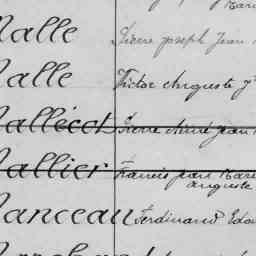 Malle Pierre Joseph Jean
Malle Victor Auguste
Mallécot Pierre Aimé Jean
Mallier Francis Jean Marie
Auguste
Manceau Ferdinand Edou